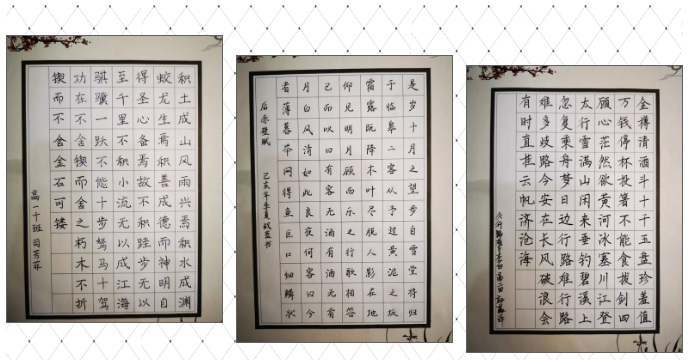 积土成山风雨兴焉积水成渊
蛟龙生焉积善成德而神明自
得圣心备焉故不积跬步无以
至千里不积小流无以成江海
骐骥一跃不能十步驽马十驾
功在不舍锲而舍之朽木不折
锲而不舍金石可镂
高一十班 司芳菲
是岁十月之望步自雪堂将归
于临皋二客从予过黄泥之坂
霜露既降木叶尽脱人影在地
仰见明月顾而乐之行歌相答
已而叹曰有客无酒有酒无肴
月白风清如此良夜何客曰今
者薄暮举网得鱼巨口细鳞状
后赤壁赋 己亥年季夏
金樽清酒斗十千玉盘珍羞值
万钱停杯投箸不能食拔剑四
顾心茫然欲黄河冰塞川登
太行雪满山闲来垂钓碧溪上
忽复乘舟梦日边行路难行路
难多歧路今安在长风破浪会
有时直挂云帆济沧海